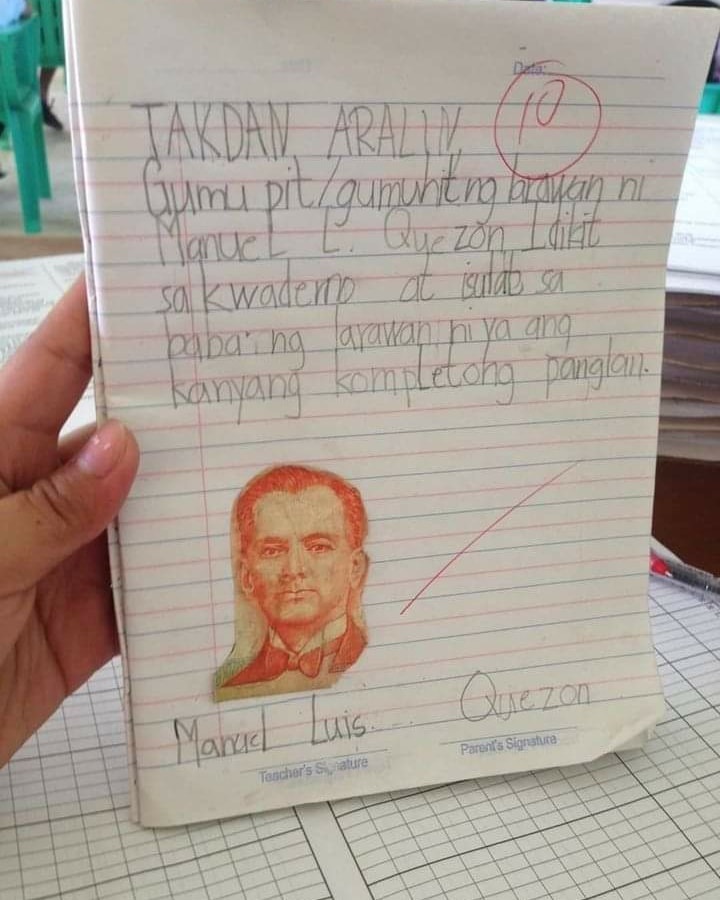 Date:
10
TAKDAN ARALIN
Gumupit/gumuhit ng larawan ni
Manuel L. Quezon Idikit
sa kwaderno at isulat sa
baba ng larawan niya ang
kanyang kompletong panglan.
Manuel Luis Quezon
Teacher's Signature
Parent's Signature